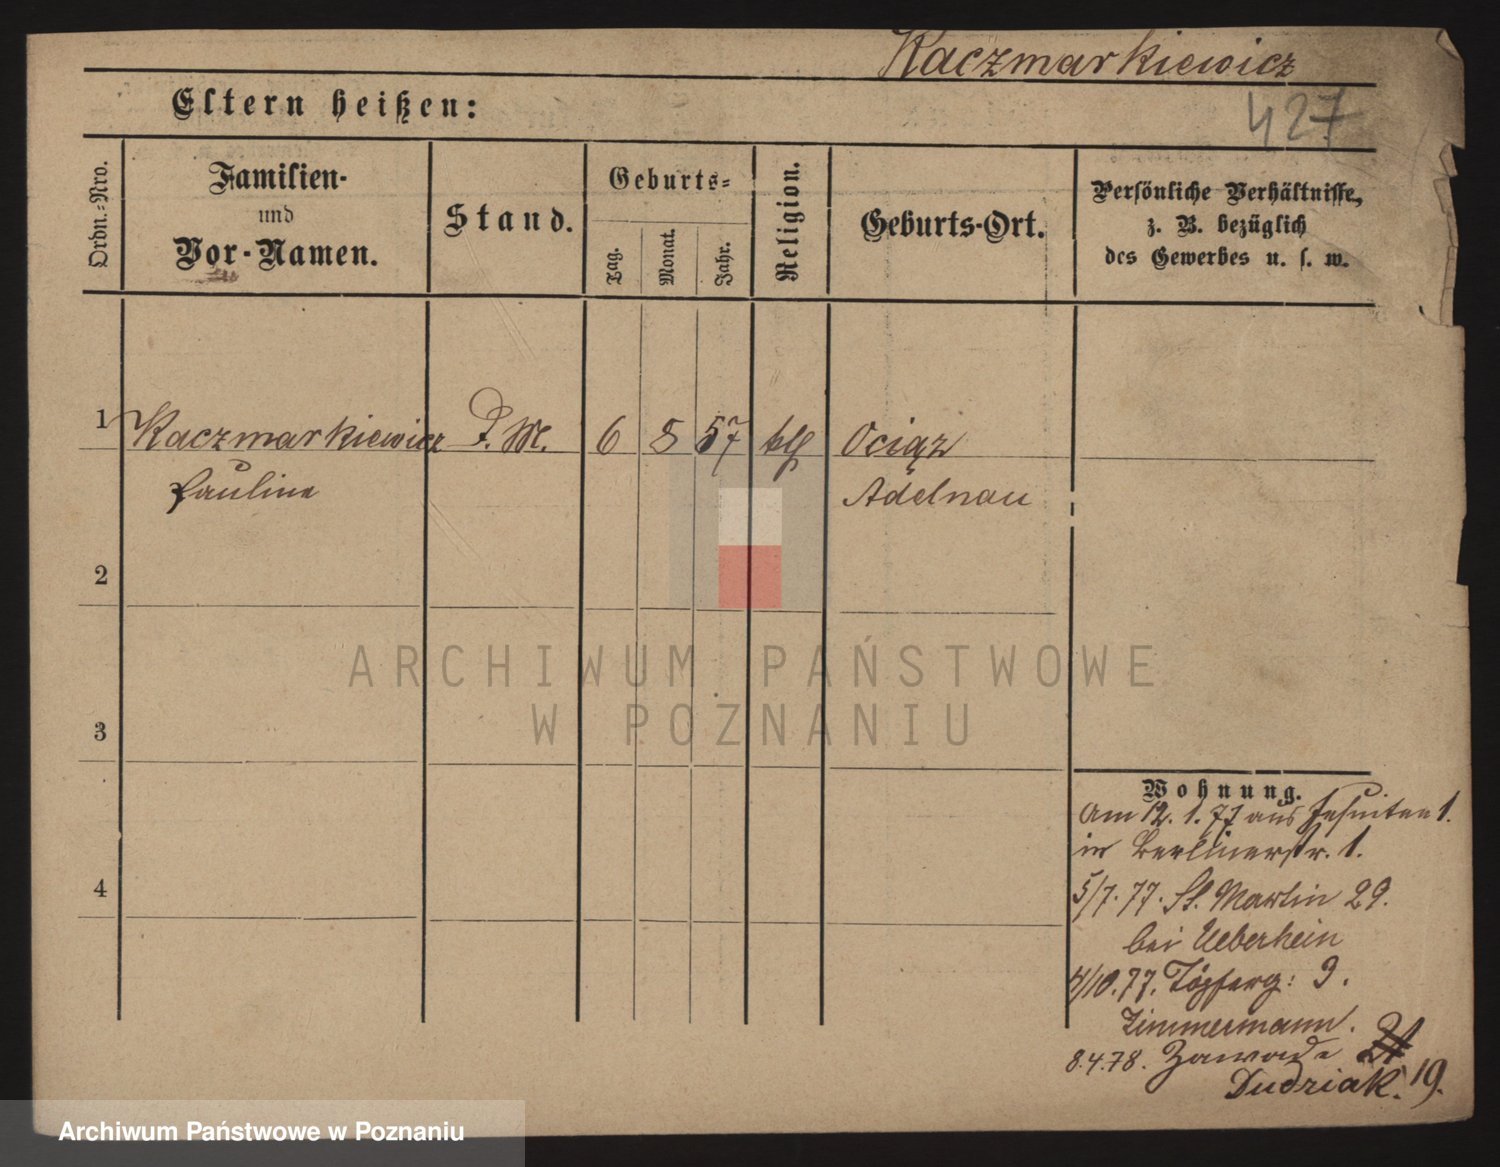 Kaczmarkiewicz
Eltern heißen:
427
Ordn.-Nro.
Familien-
und
Vor-Namen.
Stand.
Geburts-
Tag.
Monat.
Jahr.
Religion.
Geburts-Ort.
Persönliche Verhältnisse,
z. B. bezüglich
des Gewerbes u. s. w.
1 Kaczmarkiewicz D. M. 6 5 57 kth Ociąz
Pauline Adelnau
2
3
4
ARCHIWUM PAŃSTWOWE
W POZNANIU
Wohnung.
Am 12. 1. 77 aus Jesuiten 1.
in Berlinerstr. 1.
5/7. 77. St. Martin 29.
bei Ueberhein
4/10. 77. Töpferg: 3.
Zimmermann.
8.4.78. Zawade
Dudziak. 19.
Archiwum Państwowe w Poznaniu